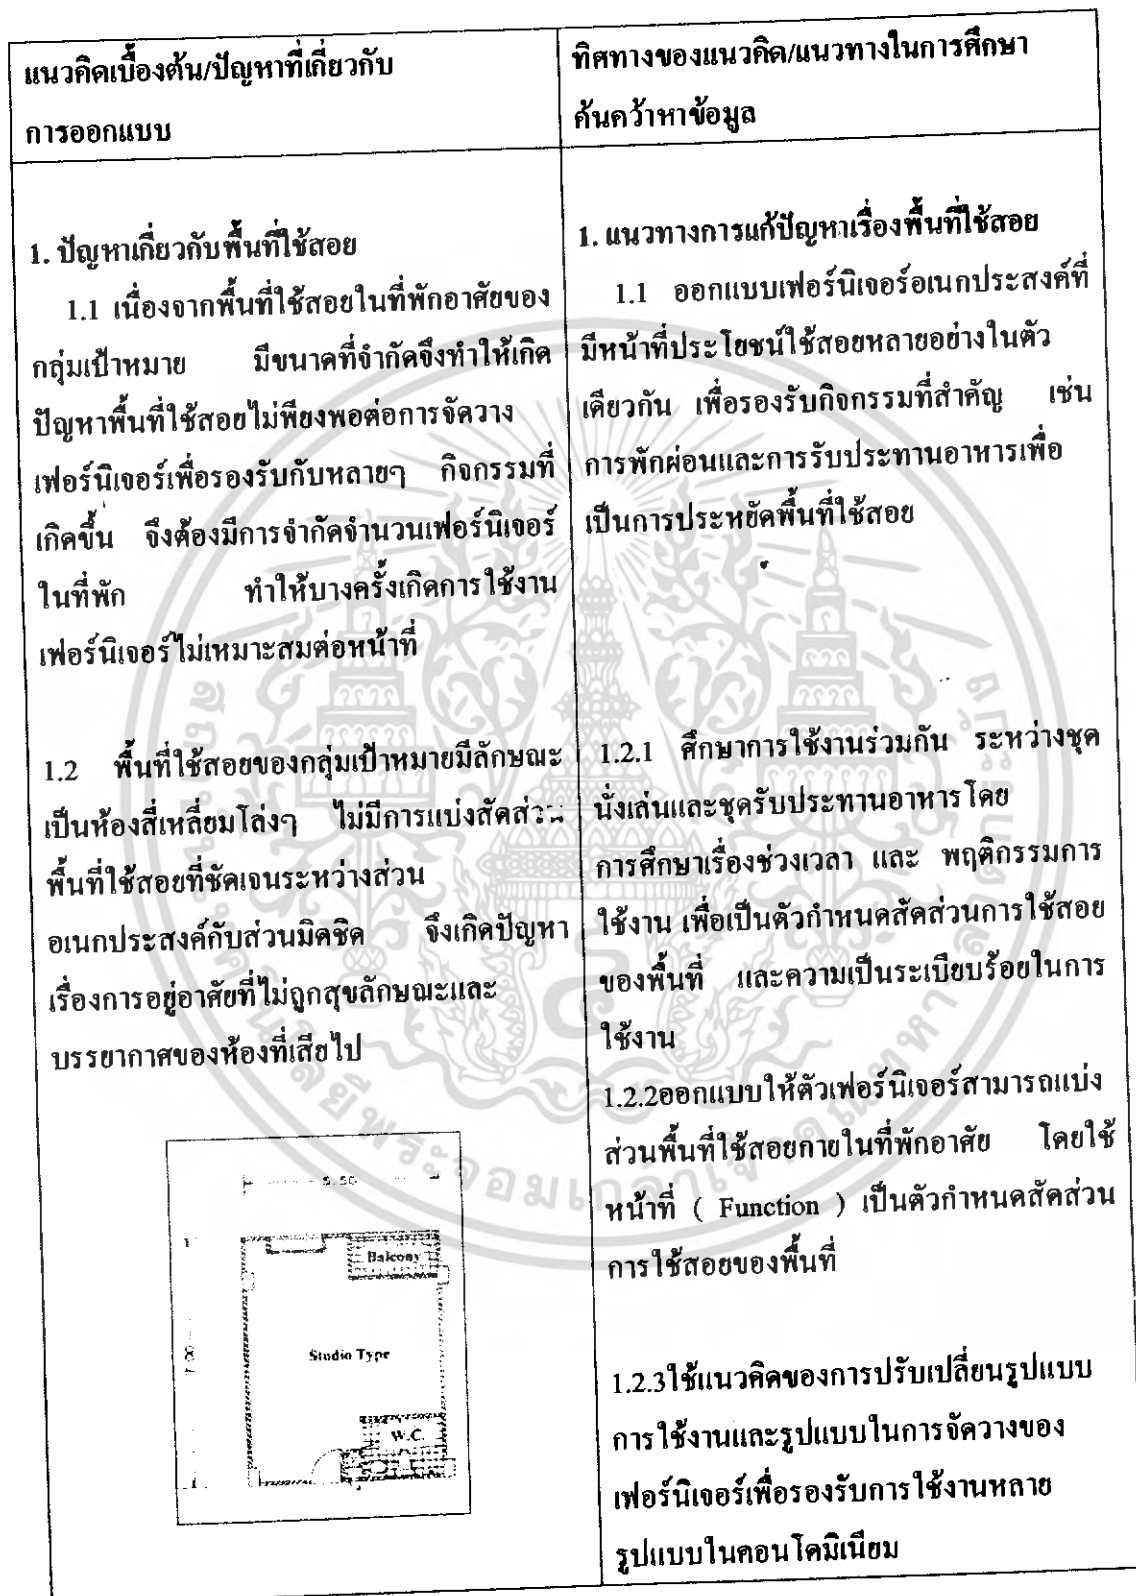 แนวคิดเบื้องต้น/ปัญหาที่เกี่ยวกับ
การออกแบบ
ทิศทางของแนวคิด/แนวทางในการศึกษา
ค้นคว้าหาข้อมูล
1. ปัญหาเกี่ยวกับพื้นที่ใช้สอย
1.1 เนื่องจากพื้นที่ใช้สอยในที่พักอาศัยของ
กลุ่มเป้าหมาย มีขนาดที่จำกัดจึงทำให้เกิด
ปัญหาพื้นที่ใช้สอยไม่พียงพอต่อการจัดวาง
เฟอร์นิเจอร์เพื่อรองรับกับหลายๆ กิจกรรมที่
เกิดขึ้น จึงต้องมีการจำกัดจำนวนเฟอร์นิเจอร์
ในที่พัก ทำให้บางครั้งเกิดการใช้งาน
เฟอร์นิเจอร์ไม่เหมาะสมต่อหน้าที่
1.2 พื้นที่ใช้สอยของกลุ่มเป้าหมายมีลักษณะ
เป็นห้องสี่เหลี่ยมโล่งๆ ไม่มีการแบ่งสัดส่วน
พื้นที่ใช้สอยที่ชัดเจนระหว่างส่วน
อเนกประสงค์กับส่วนมิดชิด จึงเกิดปัญหา
เรื่องการอยู่อาศัยที่ไม่ถูกสุขลักษณะและ
บรรยากาศของห้องที่เสียไป
Balcony
7.00
Studio Type
W.C.
1. แนวทางการแก้ปัญหาเรื่องพื้นที่ใช้สอย
1.1 ออกแบบเฟอร์นิเจอร์อเนกประสงค์ที่
มีหน้าที่ประโยชน์ใช้สอยหลายอย่างในตัว
เดียวกัน เพื่อรองรับกิจกรรมที่สำคัญ เช่น
การพักผ่อนและการรับประทานอาหารเพื่อ
เป็นการประหยัดพื้นที่ใช้สอย
1.2.1 ศึกษาการใช้งานร่วมกัน ระหว่างชุด
นั่งเล่นและชุดรับประทานอาหารโดย
การศึกษาเรื่องช่วงเวลา และ พฤติกรรมการ
ใช้งาน เพื่อเป็นตัวกำหนดสัดส่วนการใช้สอย
ของพื้นที่ และความเป็นระเบียบร้อยในการ
ใช้งาน
1.2.2ออกแบบให้ตัวเฟอร์นิเจอร์สามารถแบ่ง
ส่วนพื้นที่ใช้สอยภายในที่พักอาศัย โดยใช้
หน้าที่ ( Function ) เป็นตัวกำหนดสัดส่วน
การใช้สอยของพื้นที่
1.2.3ใช้แนวคิดของการปรับเปลี่ยนรูปแบบ
การใช้งานและรูปแบบในการจัดวางของ
เฟอร์นิเจอร์เพื่อรองรับการใช้งานหลาย
รูปแบบในคอนโดมิเนียม